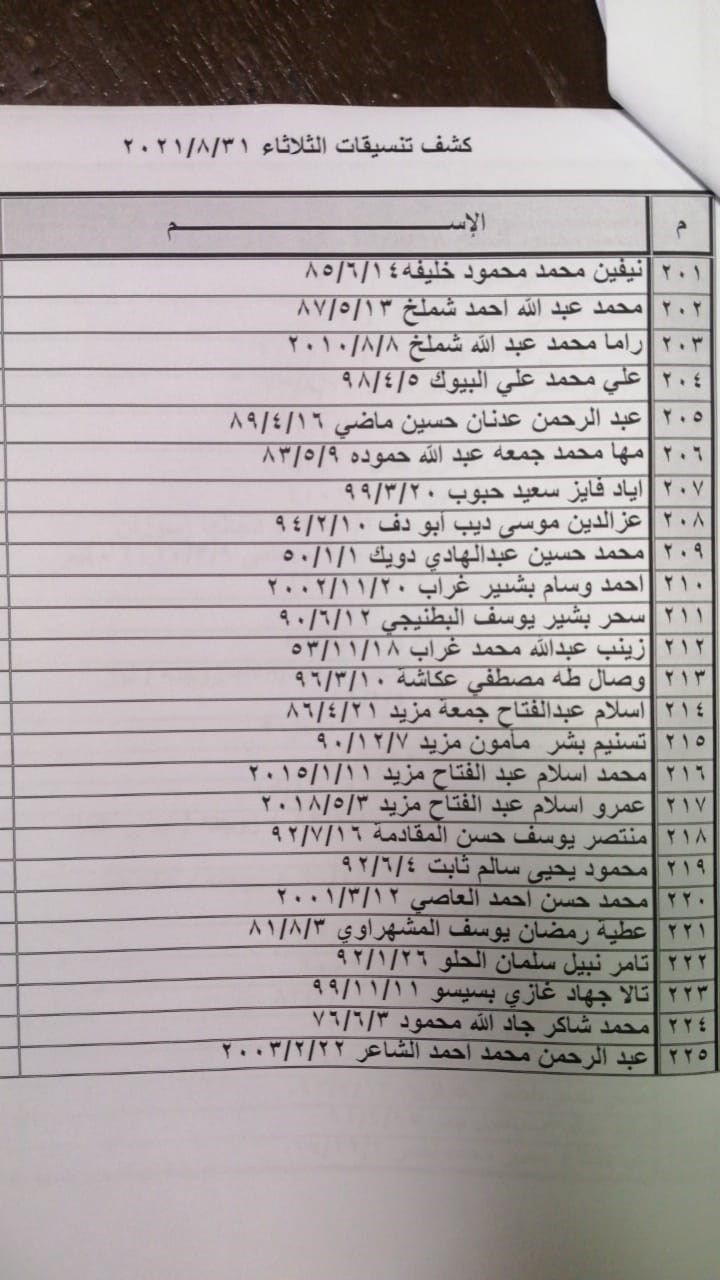 كشف تنسيقات الثلاثاء ٢٠٢١/٨/٣١
م الإســـــــــــــــــــــم
٢٠١ نيفين محمد محمود خليفه ٨٥/٦/١٤
٢٠٢ محمد عبد الله احمد شملخ ٨٧/٥/١٣
٢٠٣ راما محمد عبد الله شملخ ٢٠١٠/٨/٨
٢٠٤ علي محمد علي البيوك ٩٨/٤/٥
٢٠٥ عبد الرحمن عدنان حسين ماضي ٨٩/٤/١٦
٢٠٦ مها محمد جمعه عبد الله حموده ٨٣/٥/٩
٢٠٧ اياد فايز سعيد حبوب ٩٩/٣/٢٠
٢٠٨ عزالدين موسى ديب أبو دف ٩٤/٢/١٠
٢٠٩ محمد حسين عبدالهادي دويك ٥٠/١/١
٢١٠ احمد وسام بشير غراب ٢٠٠٢/١١/٢٠
٢١١ سحر بشير يوسف البطنيجي ٩٠/٦/١٢
٢١٢ زينب عبدالله محمد غراب ٥٣/١١/١٨
٢١٣ وصال طه مصطفي عكاشة ٩٦/٣/١٠
٢١٤ اسلام عبدالفتاح جمعة مزيد ٨٦/٤/٢١
٢١٥ تسنيم بشر مأمون مزيد ٩٠/١٢/٧
٢١٦ محمد اسلام عبد الفتاح مزيد ٢٠١٥/١/١١
٢١٧ عمرو اسلام عبد الفتاح مزيد ٢٠١٨/٥/٣
٢١٨ منتصر يوسف حسن المقادمة ٩٢/٧/١٦
٢١٩ محمود يحيى سالم ثابت ٩٢/٦/٤
٢٢٠ محمد حسن احمد العاصي ٢٠٠١/٣/١٢
٢٢١ عطية رمضان يوسف المشهراوي ٨١/٨/٣
٢٢٢ تامر نبيل سلمان الحلو ٩٢/١/٢٦
٢٢٣ تالا جهاد غازي بسيسو ٩٩/١١/١١
٢٢٤ محمد شاكر جاد الله محمود ٧٦/٦/٣
٢٢٥ عبد الرحمن محمد احمد الشاعر ٢٠٠٣/٢/٢٢